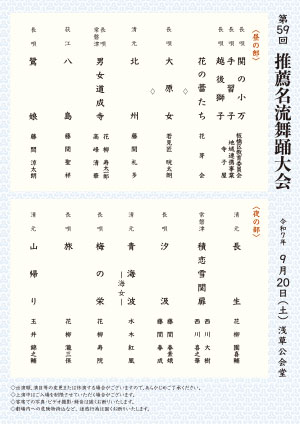 第59回 推薦名流舞踊大会
令和7年 9月20日(土) 浅草公会堂
〈昼の部〉
長唄 関の小万
長唄 手習子
長唄 越後獅子
板橋区教育委員会
地域連携事業
寺子屋
花の蕾たち 花芽会
◇
長唄 大原女 若見匠 祐太朗
◇
清元 北州 藤間礼多
長唄
常磐津 男女道成寺 花柳寿太一郎
高峰清華
荻江 八島 藤間聖祥
長唄 鷺娘 藤間涼太朗
〈夜の部〉
清元 長生 花柳園喜輔
常磐津 積恋雪関扉 西川大樹
西川喜之華
長唄 汐汲 藤間眷襄娘
藤間眷成
清元 青海波 ―海女― 水木紅凰
長唄 梅の栄 花柳寿院
長唄 旅 花柳瀧三保
清元 山帰り 玉井錦之輔
◎出演順、演目等の変更または休演する場合がございますので、あらかじめご了承ください。
◎上演中はご入場を制限させていただく場合がございます。
◎客席での写真・ビデオ撮影・録音は固くお断りいたします。
◎劇場内への危険物持込など、迷惑行為は固くお断りいたします。